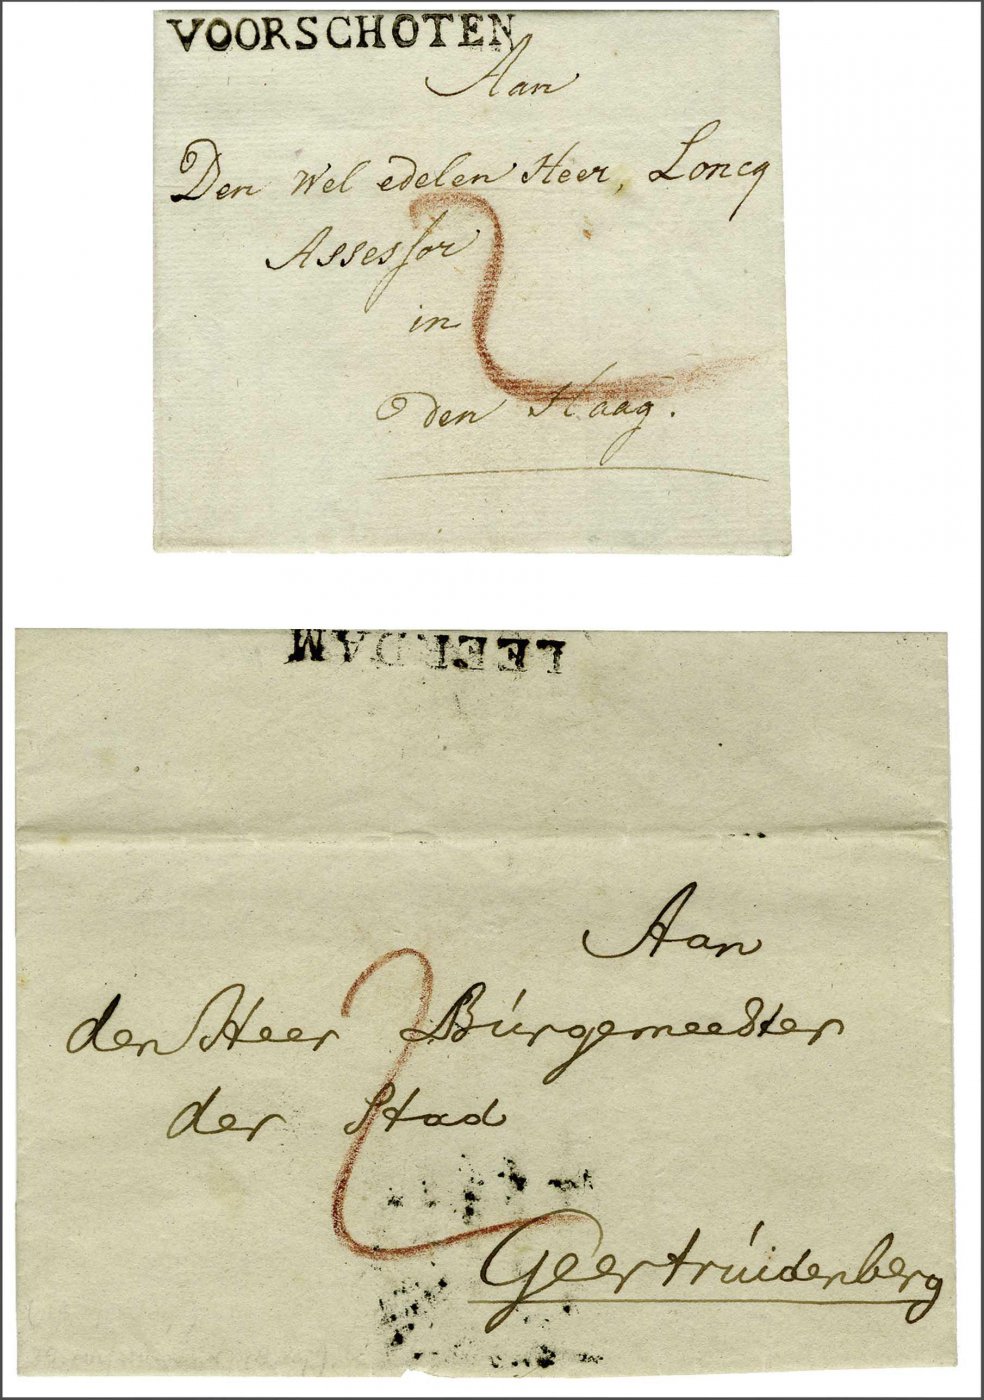 VOORSCHOTEN
Aan
Den Wel edelen Heer, Loncq
Assessor
in
den Haag.
2
LEERDAM
Aan
den Heer Burgemeester
der Stad
Geertruidenberg
2